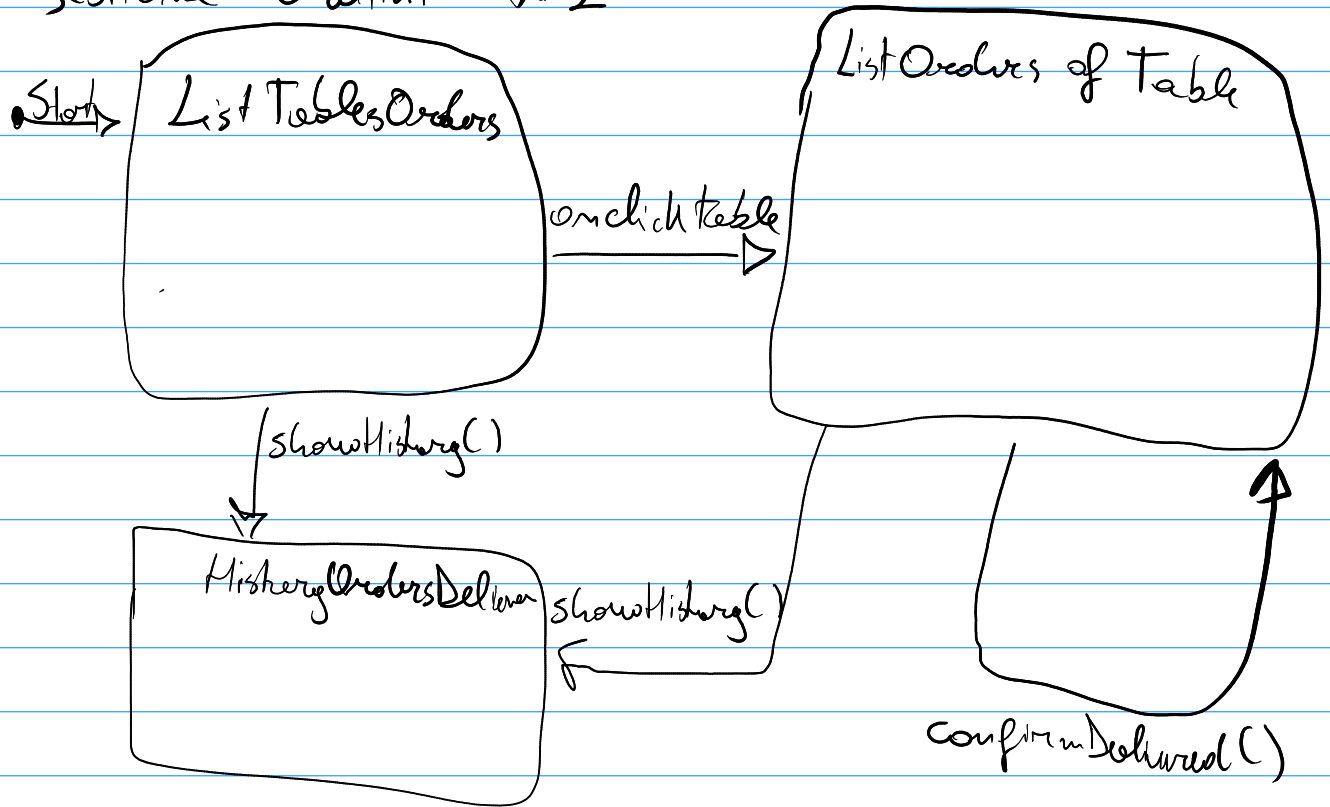 Start
List Tables Orders
List Orders of Table
onclick table
showHistory()
HistoryOrdersDeliver
showHistory()
confirmDelivered()